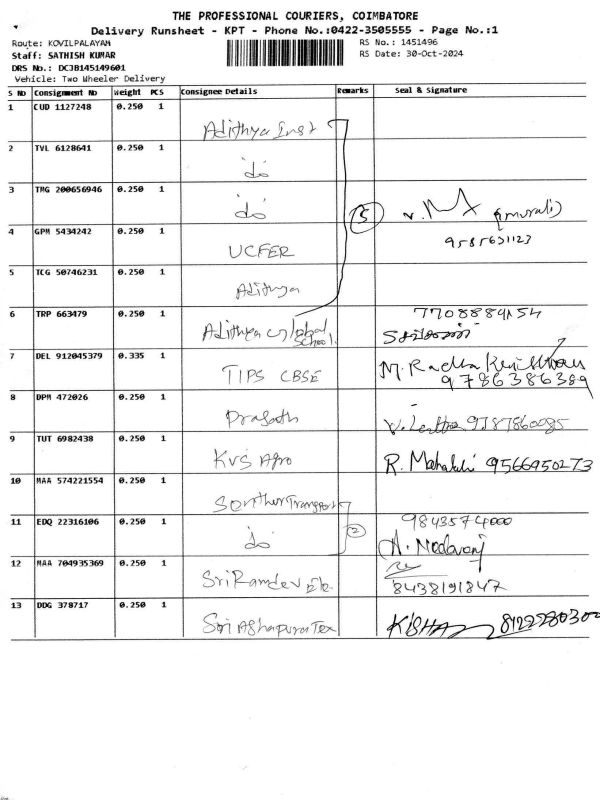 THE PROFESSIONAL COURIERS, COIMBATORE
Delivery Runsheet - KPT - Phone No.:0422-3505555 - Page No.:1
Route: KOVILPALAYAM RS No.: 1451496
Staff: SATHISH KUMAR RS Date: 30-Oct-2024
DRS No.: DCJB145149601
Vehicle: Two Wheeler Delivery
S No Consignment No Weight PCS Consignee Details Remarks Seal & Signature
1 CUD 1127248 0.250 1 Adithya Inst
2 TVL 6128641 0.250 1 do
3 TMG 200656946 0.250 1 do 5 (murali)
4 GPM 5434242 0.250 1 UCFER 9585631123
5 TCG 50746231 0.250 1 Adithya
6 TRP 663479 0.250 1 Adithya Global School
7 DEL 912045379 0.335 1 TIPS CBSE M. Radha 9786386389
8 DPM 472026 0.250 1 Prasath
9 TUT 6982438 0.250 1 KVS Agro R. 9566950273
10 MAA 574221554 0.250 1 Transport
11 EDQ 22316106 0.250 1 do 2 9843574000
12 MAA 704935369 0.250 1 Sri Ramdev 8438191847
13 DDG 378717 0.250 1 Sri Ashapura Tex 8122280300